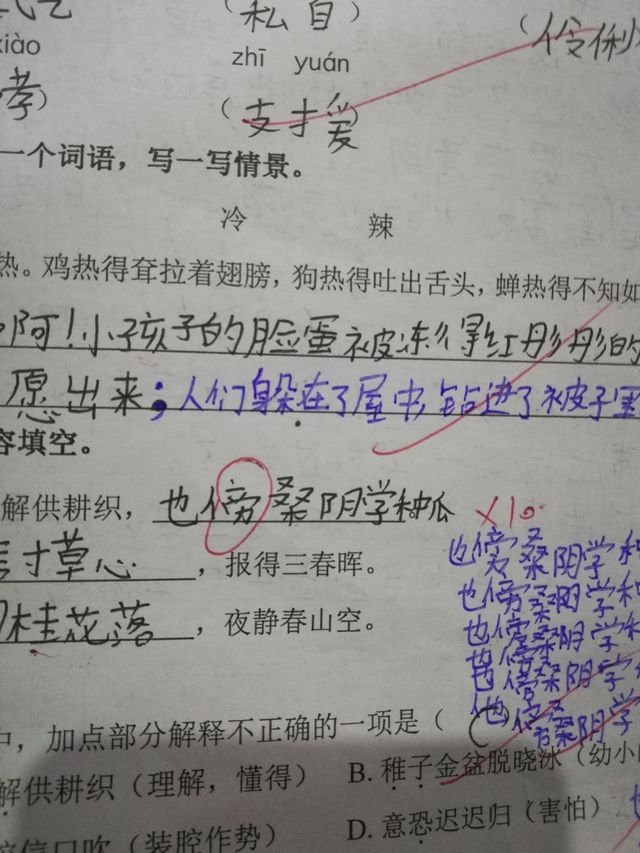 （私自）
xiào
zhī yuán
（伶俐
孝）
（支才爰
一个词语，写一写情景。
冷 辣
热。鸡热得耷拉着翅膀，狗热得吐出舌头，蝉热得不知如
啊！小孩子的脸蛋被冻得红彤彤的
愿出来；人们躲在了屋中，钻进了被子里
容填空。
解供耕织，也傍桑阴学种瓜
×10
言寸草心，报得三春晖。
桂花落，夜静春山空。
也傍桑阴学种
也傍桑阴学种
也傍桑阴学种
也傍桑阴学
也傍桑阴学
中，加点部分解释不正确的一项是（C
解供耕织（理解，懂得） B.稚子金盆脱晓冰（幼小
腔信口吹（装腔作势） D.意恐迟迟归（害怕）